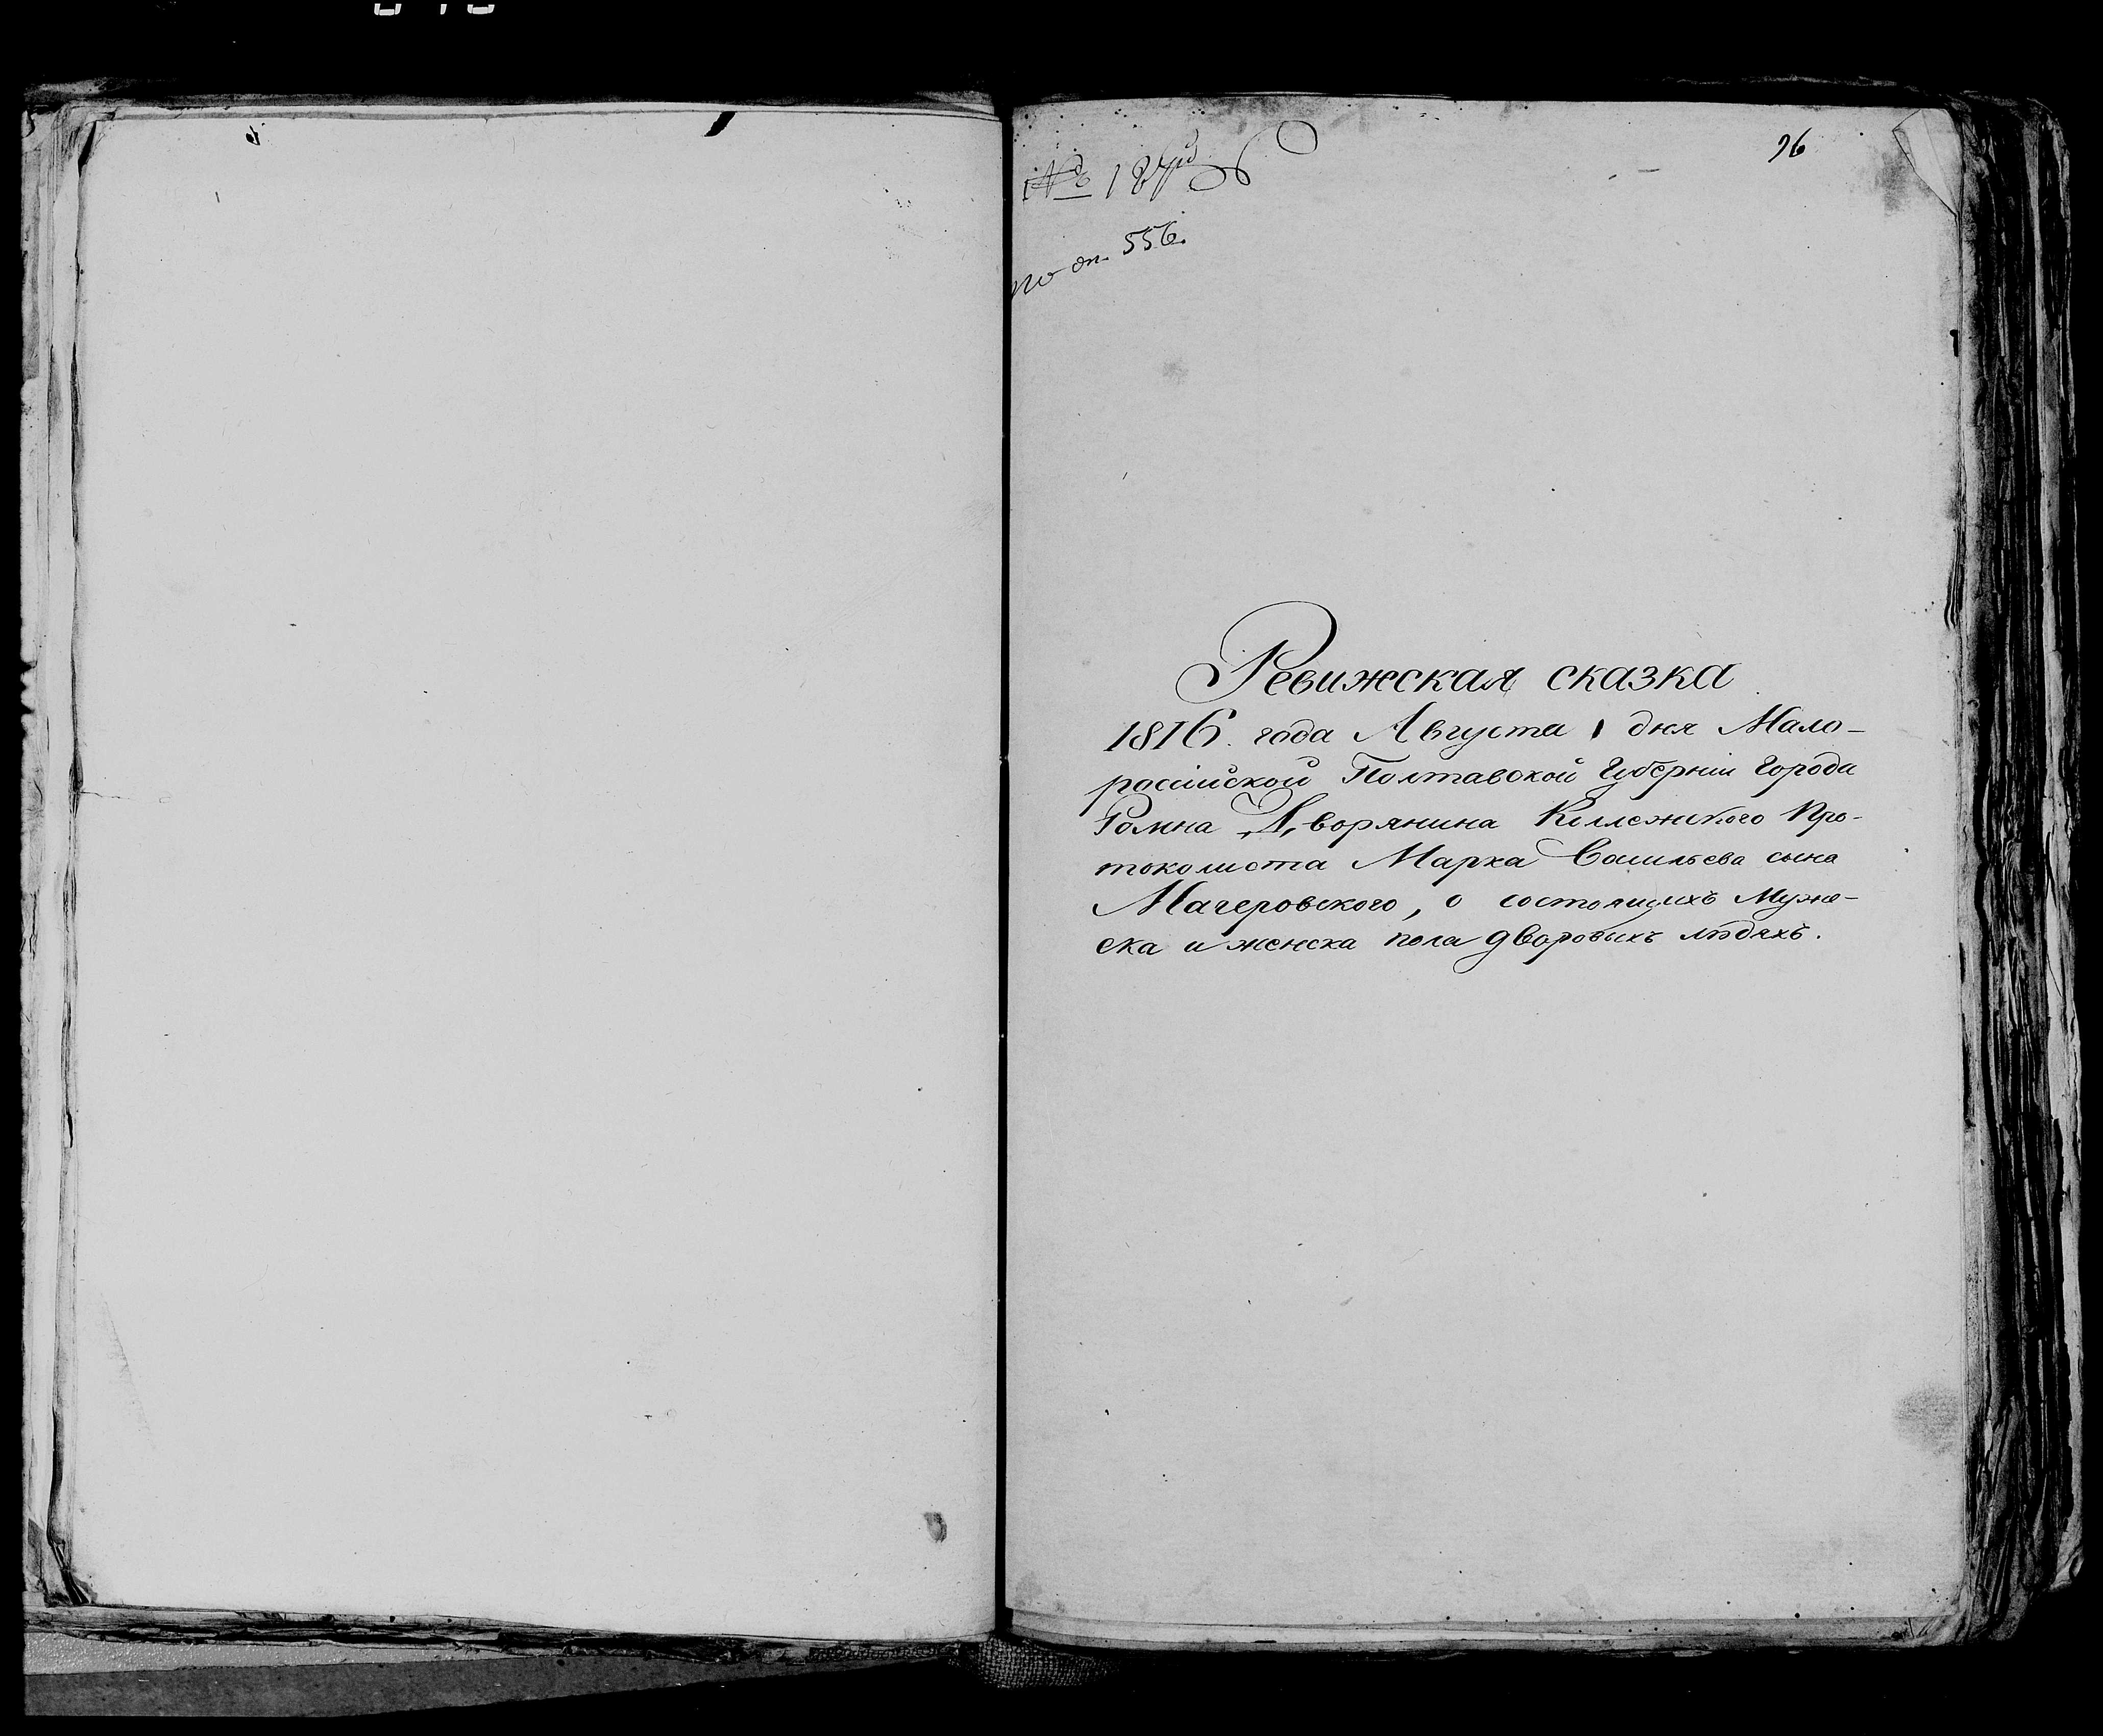 96
№ 187й
по оп. 556.
Ревижская сказка
1816. года Августа 1 дня Мало-
россійской Полтавской Губерніи Города
Ромна Дворянина Коллежского Про-
токолиста Марка Васильева сына
Мачеровского, о состоящихъ Муже-
ска и женска пола дворовыхъ людяхъ.